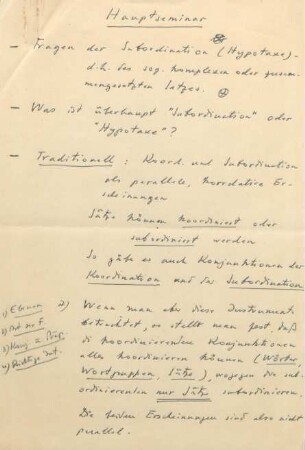 Hauptseminar
— Fragen der Subordination (Hypotaxe) -
d.h. des sog. komplexen oder zusam-
mengesetzten Satzes.
— Was ist überhaupt "Subordination" oder
"Hypotaxe"?
— Traditionell: Koord. und Subordination
als parallele, korrelative Er-
scheinungen
Sätze können koordiniert oder
subordiniert werden
So gäbe es auch Konjunktionen der
Koordination und der Subordination
2) Wenn man aber diese Instrumente
betrachtet, so stellt man fest, daß
die koordinierenden Konjunktionen
alles koordinieren können (Wörter,
Wortgruppen, Sätze), wogegen die sub-
ordinierenden nur Sätze subordinieren.
Die beiden Erscheinungen sind also nicht
parallel.
1)
2)
3) Konj. u. Präp.
4)